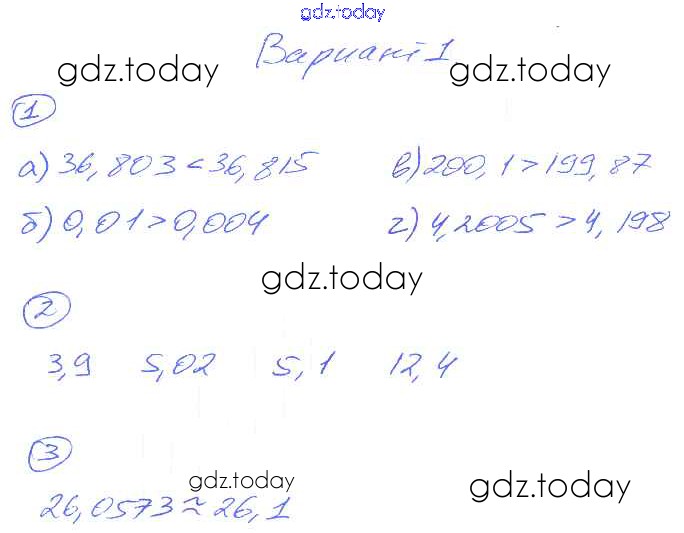 gdz.today
Вариант 1
gdz.today gdz.today
1
а) 36,803 < 36,815 в) 200,1 > 199,87
б) 0,01 > 0,004 г) 4,2005 > 4,198
gdz.today
2
3,9 5,02 5,1 12,4
3
gdz.today gdz.today
26,0573 ≈ 26,1